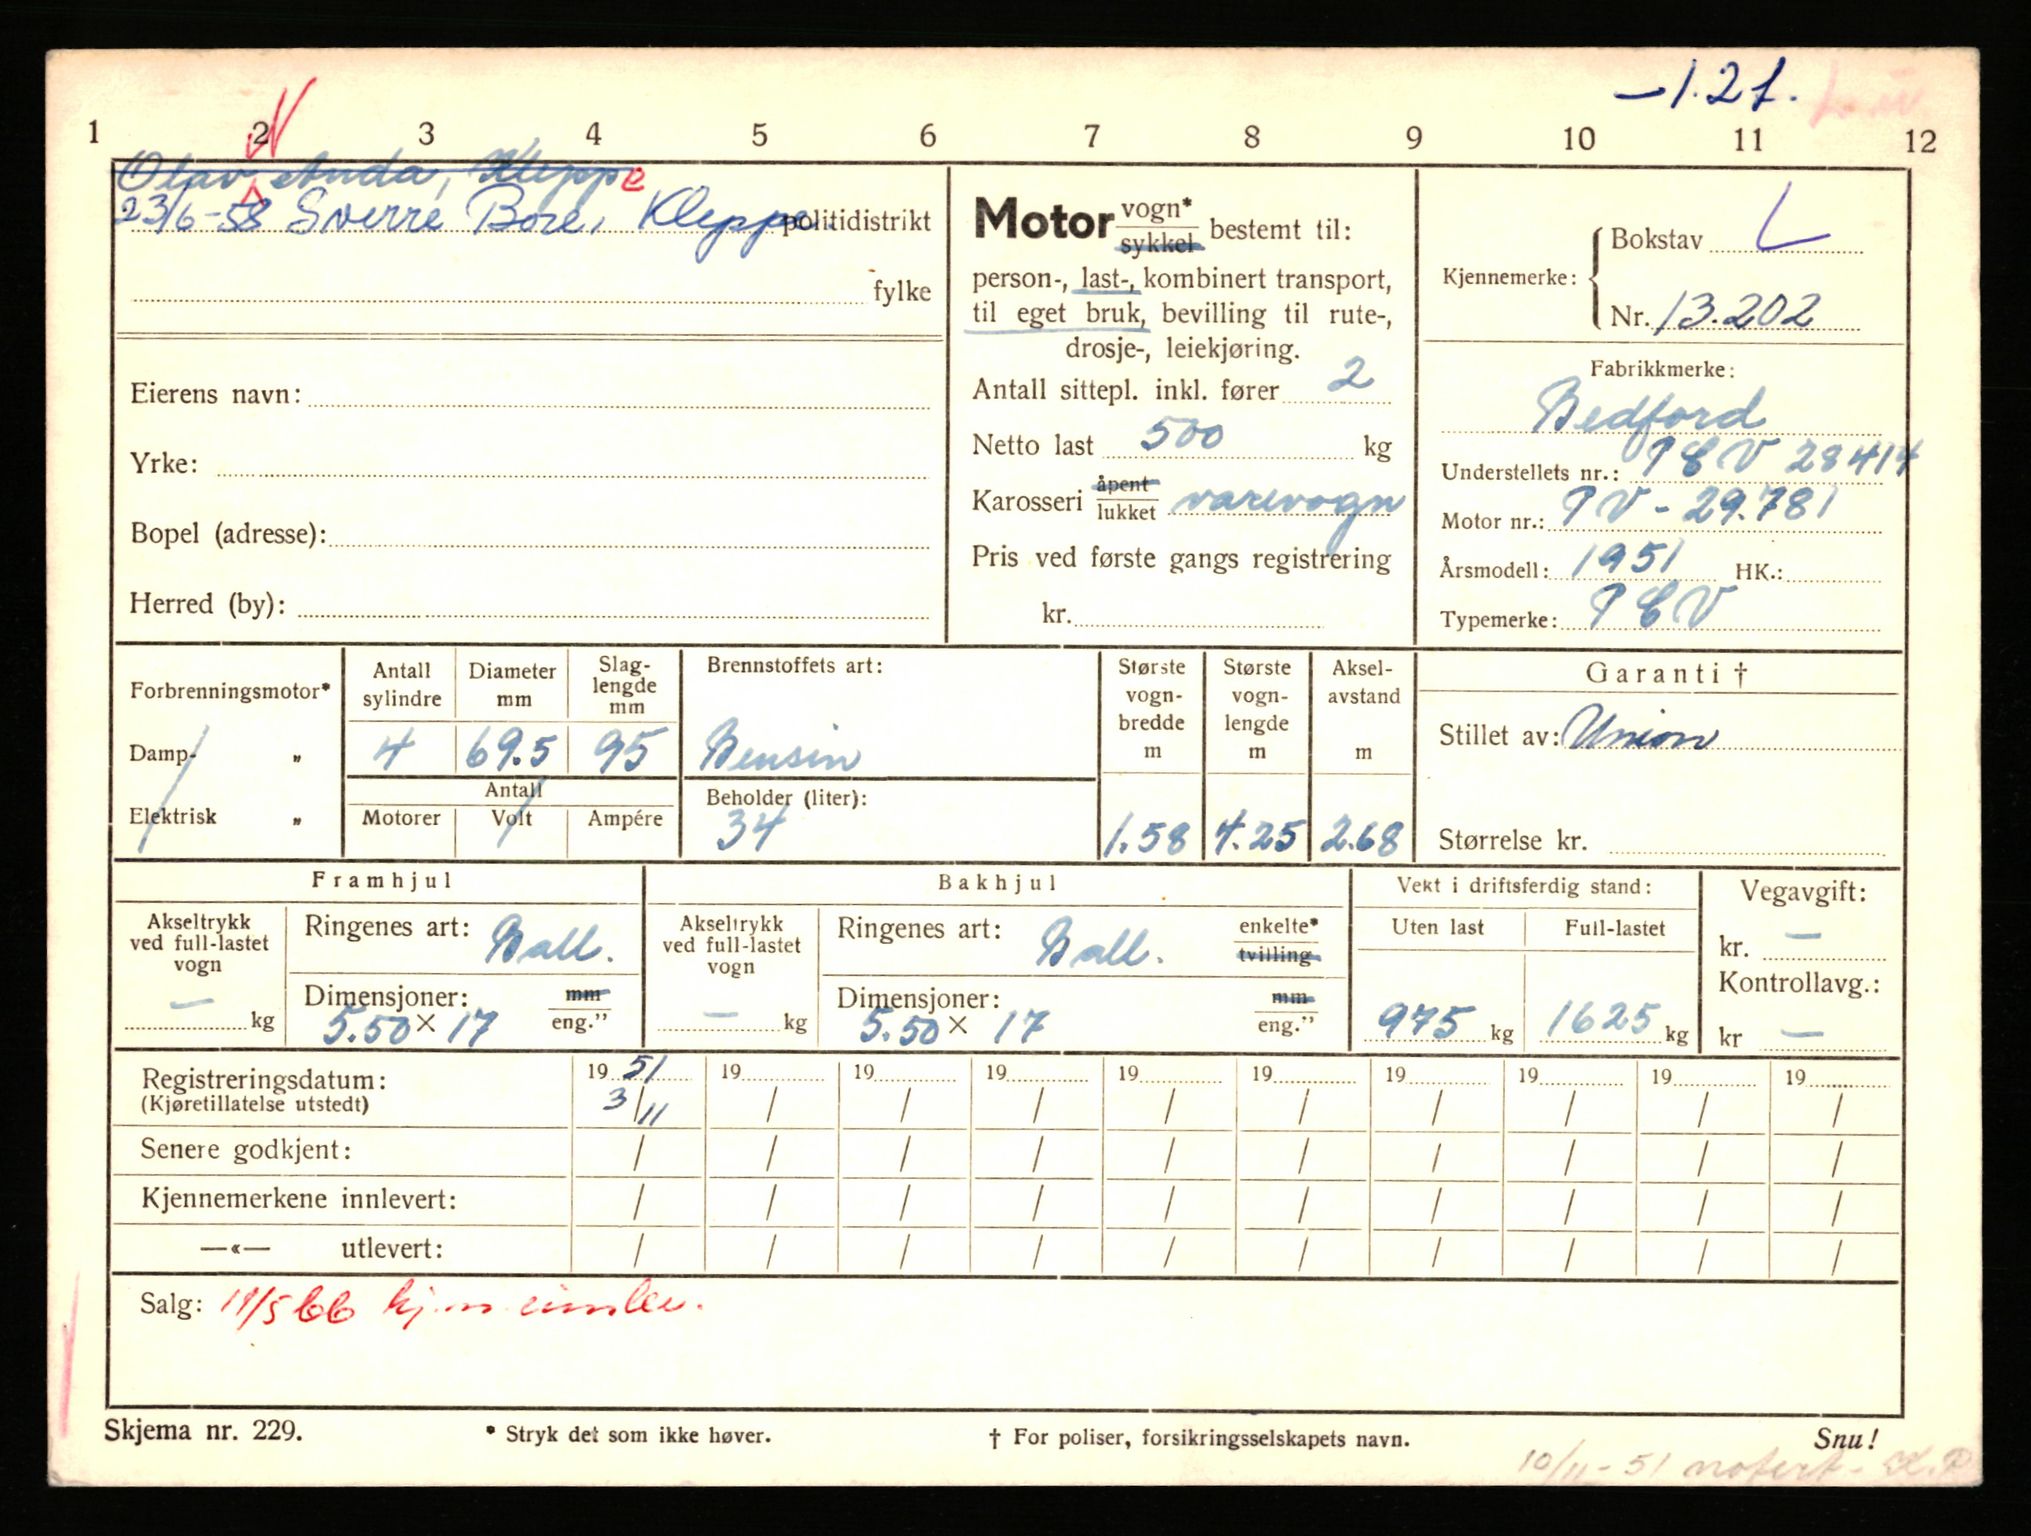 —1.21.
1 2 3 4 5 6 7 8 9 10 11 12
Olav Anda, Kleppe
23/6-58 Sverre Bore, Kleppe. politidistrikt
fylke
Eierens navn:
Yrke:
Bopel (adresse):
Herred (by):
Motor vogn* sykkel bestemt til:
person-, last-, kombinert transport,
til eget bruk, bevilling til rute-,
drosje-, leiekjøring.
Antall sittepl. inkl. fører 2
Netto last 500 kg
Karosseri åpent lukket varevogn
Pris ved første gangs registrering
kr.
Kjennemerke: Bokstav L
Nr. 13.202
Fabrikkmerke:
Bedford
Understellets nr.: PCV 28414
Motor nr.: PV - 29.781
Årsmodell: 1951 HK.:
Typemerke: PCV
Forbrenningsmotor*
Damp- „
Elektrisk „
Antall sylindre
4
Diameter mm
69.5
Slag-lengde mm
95
Antall
Motorer Volt Ampére
Brennstoffets art:
Bensin
Beholder (liter):
34
Største vogn-bredde m
1.58
Største vogn-lengde m
4.25
Aksel-avstand m
2.68
Garanti †
Stillet av: Union
Størrelse kr.
Framhjul
Akseltrykk ved full-lastet vogn
— kg
Ringenes art: Ball.
Dimensjoner: mm
5.50 × 17 eng.”
Bakhjul
Akseltrykk ved full-lastet vogn
— kg
Ringenes art: Ball. enkelte* tvilling
Dimensjoner: mm
5.50 × 17 eng.”
Vekt i driftsferdig stand:
Uten last Full-lastet
975 kg 1625 kg
Vegavgift:
kr. —
Kontrollavg.:
kr —
Registreringsdatum: 19 51 19 19 19 19 19 19 19 19 19
(Kjøretillatelse utstedt) 3/11 / / / / / / / / /
Senere godkjent: / / / / / / / / / /
Kjennemerkene innlevert: / / / / / / / / / /
—«— utlevert: / / / / / / / / / /
Salg: 11/5 66 kj.m innlev.
Skjema nr. 229. * Stryk det som ikke høver. † For poliser, forsikringsselskapets navn. Snu!
10/11-51 notert-